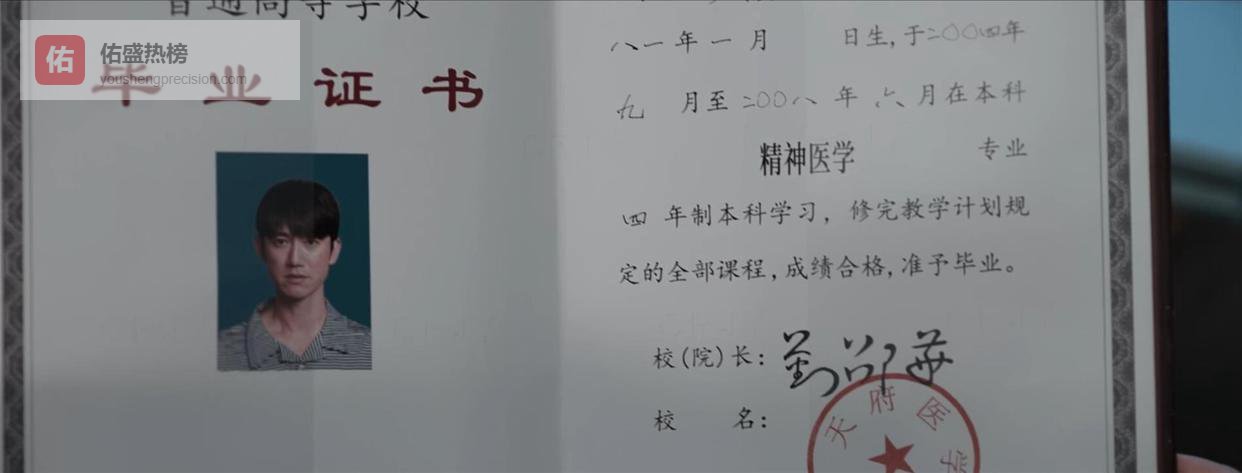 普通高等学校
毕业证书
佑
佑盛热榜
youshengprecision.com
八一年一月 日生,于二〇〇四年
九 月至二〇〇八年六月在本科
精神医学 专业
四 年制本科学习，修完教学计划规
定的全部课程,成绩合格,准予毕业。
校(院)长:
校 名:
天府医